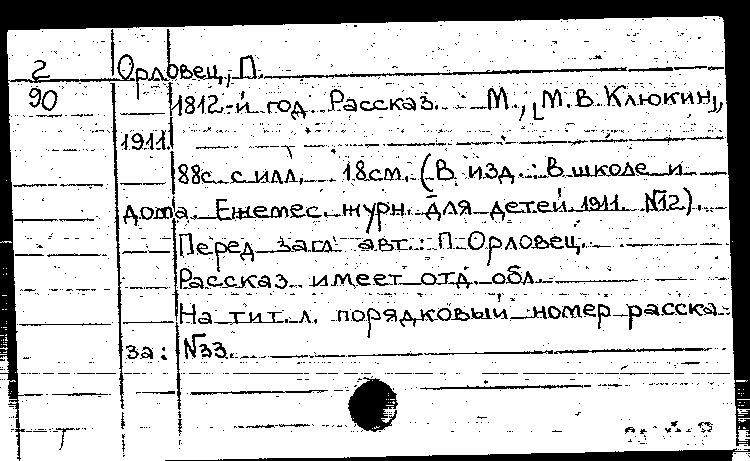 2 Орловец, П.
90 1812-й год Рассказ. М., [М.В. Клюкин],
1911.
88с. с илл. 18см. (В изд.: В школе и
дома. Ежемес. журн. для детей 1911. №12).
Перед загл. авт.: П. Орловец.
Рассказ имеет отд. обл.
На тит. л. порядковый номер расска-
за: №33.